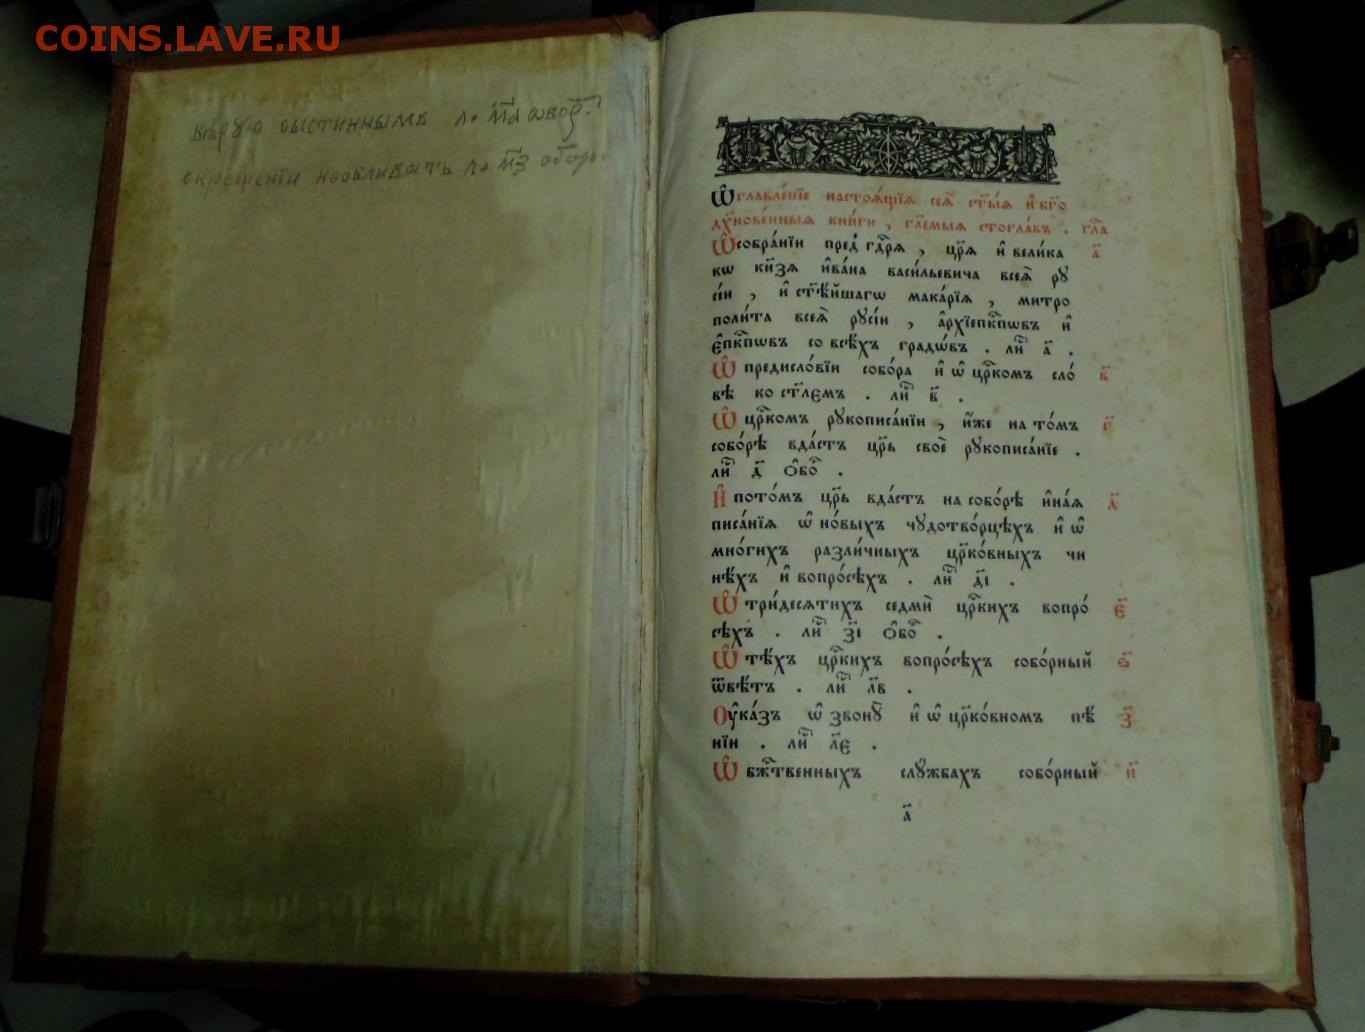 COINS.LAVE.RU
вѣрую
окрещенїи необливать
Ѡ҆главле́нїе настоѧ́щїѧ сеѧ̀ ст҃ы́ѧ и҆ бг҃о
дх҃нове́нныѧ кни́ги, гл҃емыѧ стогла́въ. гла̑
Ѡ҆ собра́нїи пред̾ гдⷭ҇рѧ, цр҃ѧ̀ и҆ вели́ка а҃
кѡ кнѧ́зѧ и҆ва́на васи́льевича всеѧ̀ рꙋ
сі́и, и҆ ст҃ѣ́йшагѡ мака́рїѧ, митро
поли́та всеѧ̀ рꙋсі́и, а҆рхїепⷭ҇кпѡвъ и҆
є҆пⷭ҇кпѡвъ со всѣ́хъ градѡ́въ. лиⷭ҇ а҃.
Ѡ҆ предисло́вїи собо́ра и҆ ѡ҆ црⷭ҇комъ сло́ в҃
вѣ ко ст҃лемъ. лиⷭ҇ в҃.
Ѡ҆ црⷭ҇комъ рꙋкописа́нїи, и҆́же на то́мъ г҃
собо́рѣ вда́стъ цр҃ь своѐ рꙋкописа́нїе.
лиⷭ҇ д҃ ѻ҆боⷬ҇.
И҆ пото́мъ цр҃ь вда́стъ на собо́рѣ и҆на́ѧ д҃
писа́нїѧ ѡ҆ но́выхъ чꙋдотво́рцѣхъ и҆ ѡ҆
мно́гихъ разли́чныхъ црⷭ҇ко́вныхъ чи
нѣ́хъ и҆ вопро́сѣхъ. лиⷭ҇ д҃і.
Ѡ҆ три́десѧтихъ седмѝ црⷭ҇кихъ вопро́ є҃
сѣхъ. лиⷭ҇ з҃і ѻ҆боⷬ҇.
Ѡ҆ тѣ́хъ црⷭ҇кихъ вопро́сѣхъ собо́рный ѕ҃
ѿвѣ́тъ. лиⷭ҇ л҃в.
Оу҆ка́зъ ѡ҆ звонꙋ̀ и҆ ѡ҆ црⷭ҇ко́вномъ пѣ́ з҃
нїи. лиⷭ҇ л҃є.
Ѡ҆ бжⷭ҇твенныхъ слꙋ́жбахъ собо́рный и҃
а҃